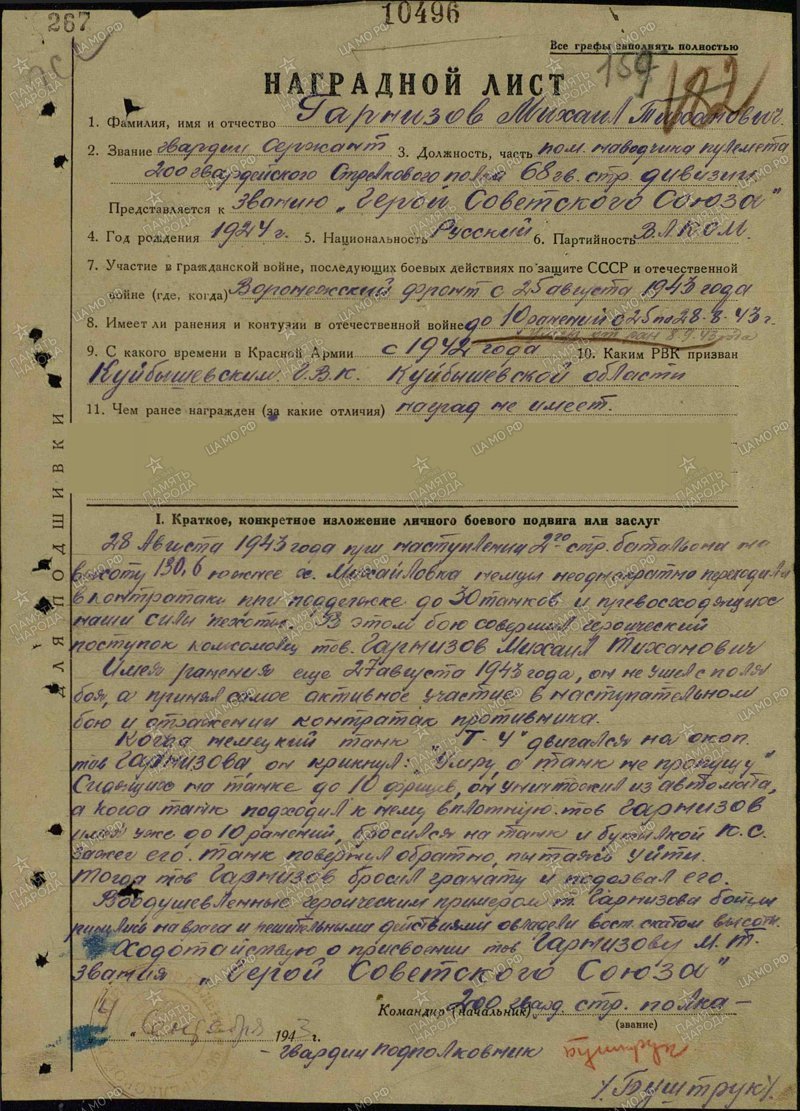 267
10496
Все графы заполнять полностью
159
182
НАГРАДНОЙ ЛИСТ
1. Фамилия, имя и отчество Гарнизов Михаил Тиханович
2. Звание гвардии сержант 3. Должность, часть пом. наводчика пулемета
200 гвардейского Стрелкового полка 68 гв. стр. дивизии
Представляется к званию „Герой Советского Союза"
4. Год рождения 1924 г. 5. Национальность Русский 6. Партийность ВЛКСМ.
7. Участие в гражданской войне, последующих боевых действиях по защите СССР и отечественной
войне (где, когда) Воронежский фронт с 25 августа 1943 года
8. Имеет ли ранения и контузии в отечественной войне до 10 ранений с 25 по 28.8.43 г.
9. С какого времени в Красной Армии с 1942 года 10. Каким РВК призван
Куйбышевским Г.В.К. Куйбышевской области
11. Чем ранее награжден (за какие отличия) наград не имеет.
ДЛЯ ПОДШИВКИ
I. Краткое, конкретное изложение личного боевого подвига или заслуг
28 Августа 1943 года при наступлении 2го стр. батальона на
высоту 130,6 южнее х. Михайловка немцы неоднократно переходили
в контратаки при поддержке до 30 танков и превосходящих
наши силы пехоты. В этом бою совершил героический
поступок комсомолец тов. Гарнизов Михаил Тиханович
Имея ранения еще 27 августа 1943 года, он не ушел с поля
боя, а принял самое активное участие в наступательном
бою и отражении контратак противника.
Когда немецкий танк "Т-4" двигался на окоп
тов Гарнизова, он крикнул: „Умру а танк не пропущу"
Сидящих на танке до 10 фрицев, он уничтожил из автомата,
а когда танк подходил к нему вплотную тов Гарнизов
имея уже до 10 ранений, бросился на танк и бутылкой К.С.
зажег его. Танк повернул обратно, пытаясь уйти.
Тогда тов Гарнизов бросил гранату и подорвал его.
Воодушевленные героическим примером т. Гарнизова бойцы
ринулись на врага и решительными действиями овладели вост. скатом высоты
Ходотайствую о присвоении тов Гарнизову М.Т.
звания „Герой Советского Союза"
Командир (начальник) 200 гвард стр. полка –
(звание)
„14" сентября 1943 г.
– гвардии подполковник
/Буштрук/.
ПАМЯТЬ НАРОДА
ЦА МО РФ